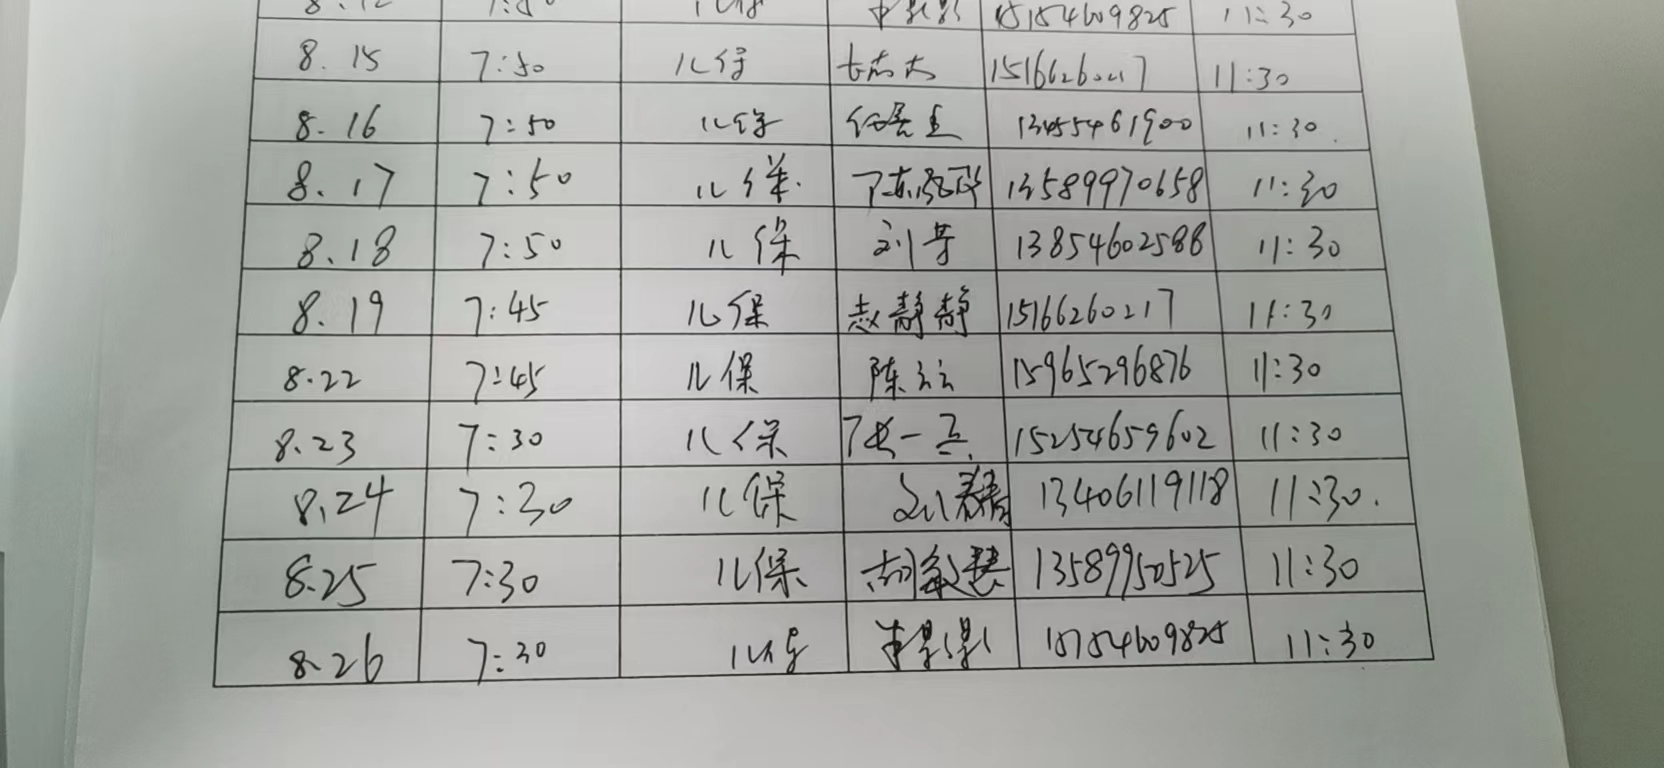 11:30
8.15 7:50 儿保 15166260217 11:30
8.16 7:50 儿保 13455461900 11:30.
8.17 7:50 儿保. 13589970658 11:30
8.18 7:50 儿保 刘芳 13854602588 11:30
8.19 7:45 儿保 赵静静 15166260217 11:30
8.22 7:45 儿保 陈云云 15965296876 11:30
8.23 7:30 儿保 15254659602 11:30
8.24 7:30 儿保 13406119118 11:30.
8.25 7:30 儿保 胡敏慧 13589950525 11:30
8.26 7:30 儿保 11:30